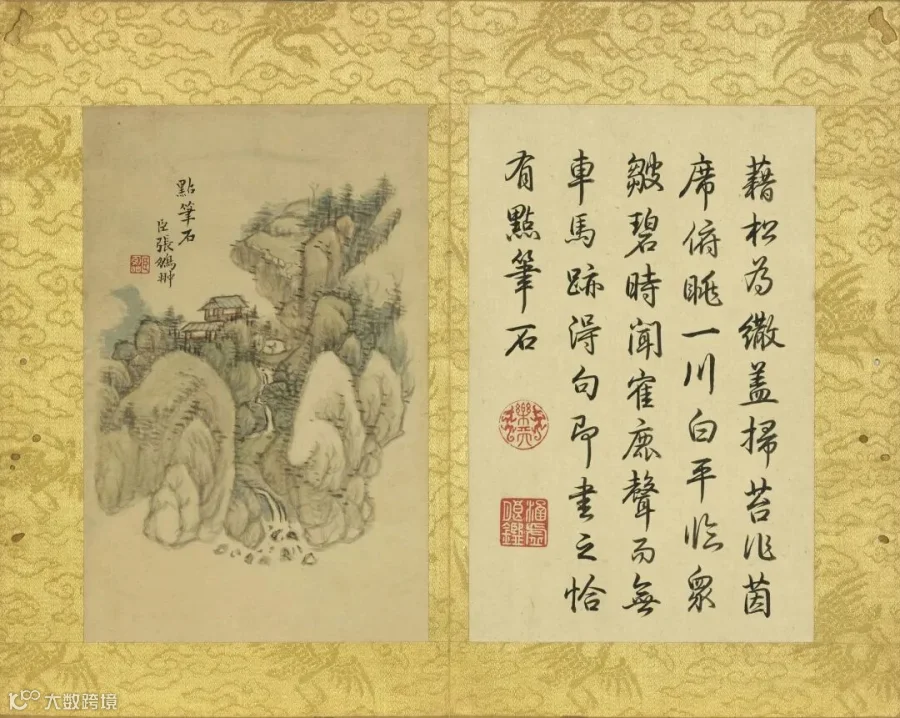 藉松為繖蓋掃苔作茵
席俯眺一川白平臨眾
皺碧時聞寉鹿聲而無
車馬跡得句即書之恰
有點筆石
樂天
涵虛朗鑑
點筆石
臣張鵬翀
大数跨境